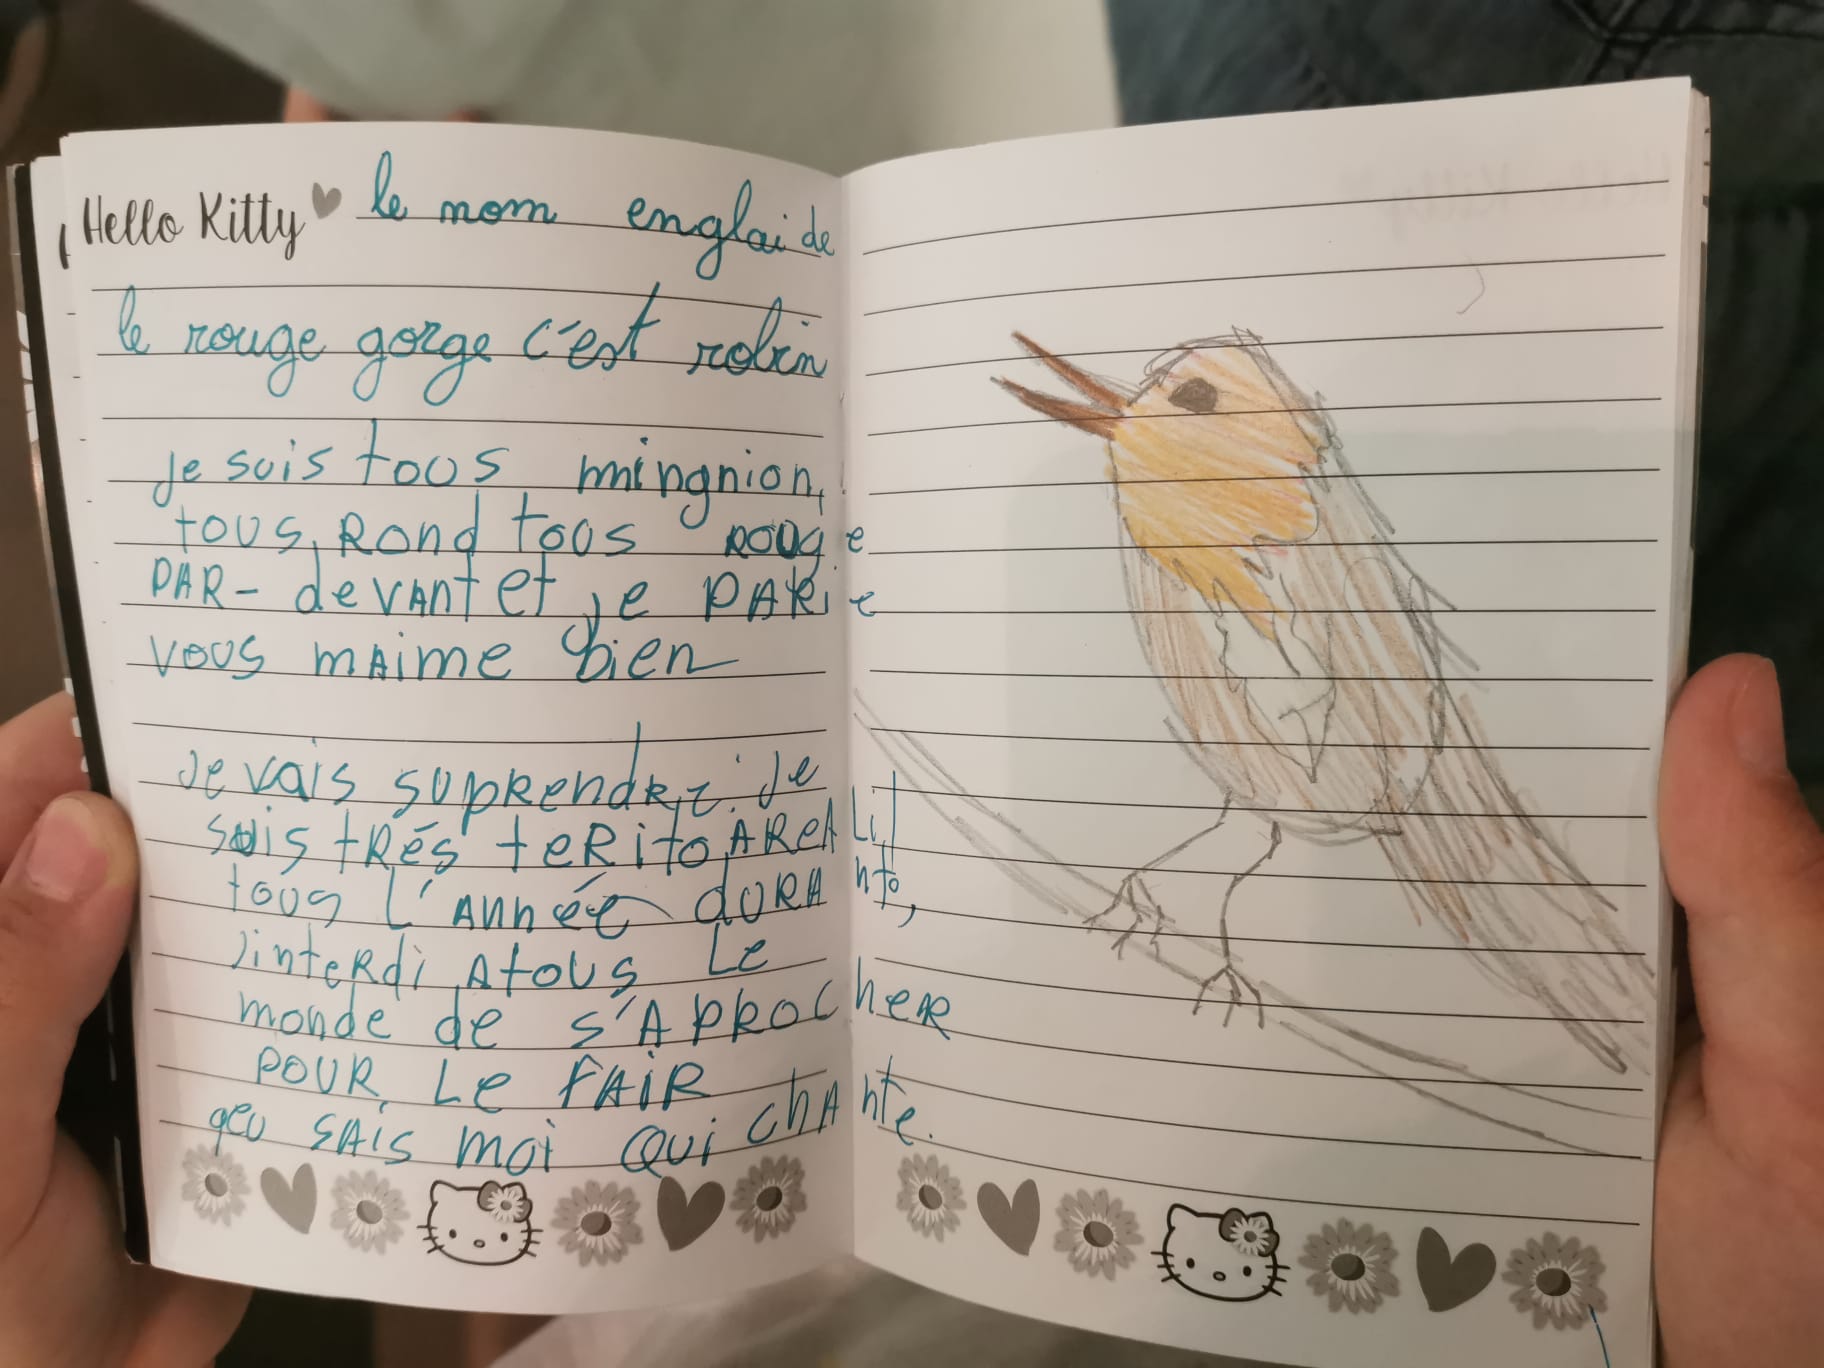 Hello Kitty le nom englai de
le rouge gorge c'est robin
je suis tous mingnion,
tous, Rond tous rouge
PAR- devant et je PARie
vous mAime bien
Je vais supRendre. Je
suis tRés teRitoAReALil
tous l'Année duRAnto,
j'inteRdi Atous Le
monde de s'APROcheR
POUR Le FAiR
geu SAis moi Qui chAnte.